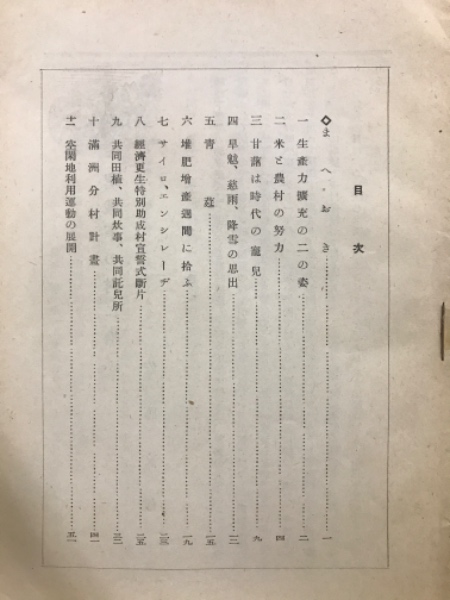 目次
◇まへおき 一
一 生産力擴充の二の姿 二
二 米と農村の努力 四
三 甘藷は時代の寵兒 九
四 旱魃、慈雨、降雪の思出 一二
五 青蔬 一五
六 堆肥增產週間に拾ふ 一九
七 サイロ、エンシレーヂ 二三
八 經濟更生特別助成村宣誓式斷片 二五
九 共同田植、共同炊事、共同託兒所 三二
十 滿洲分村計畫 四一
十一 空閑地利用運動の展開 五一